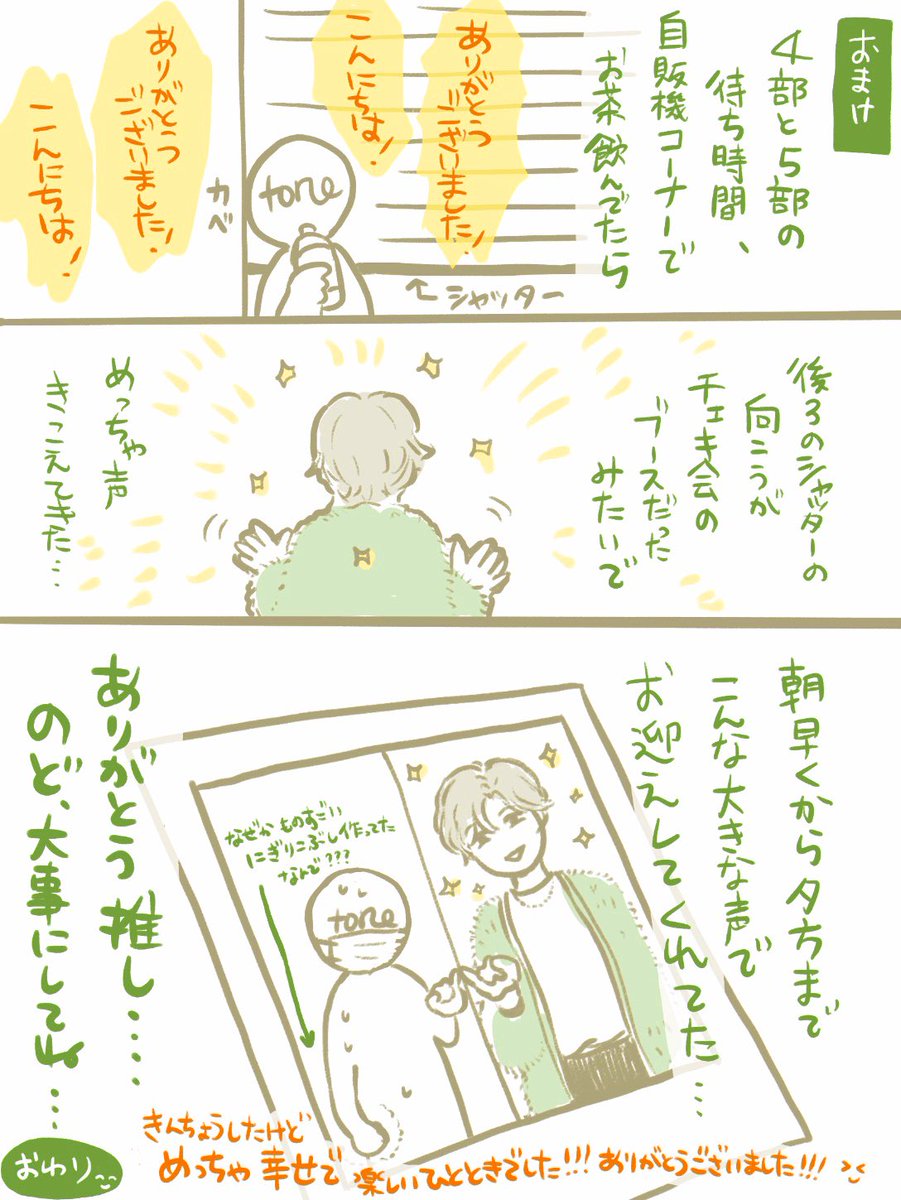 おまけ
4部と5部の
待ち時間、
自販機コーナーで
お茶飲んでたら
ありがとう
ございました!
こんにちは!
←シャッター
tone
カベ
ありがとう
ございました!
こんにちは!
後ろのシャッターの
向こうが
チェキ会の
ブースだった
みたいで
めっちゃ声
きこえてきた…
朝早くから夕方まで
こんな大きな声で
お迎えしてくれてた…
なぜかものすごい
にぎりこぶし作ってた
なんで???
tone
ありがとう推し…
のど、大事にしてね…
きんちょうしたけど
めっちゃ幸せで楽しいひとときでした!!!ありがとうございました!!!
おわり